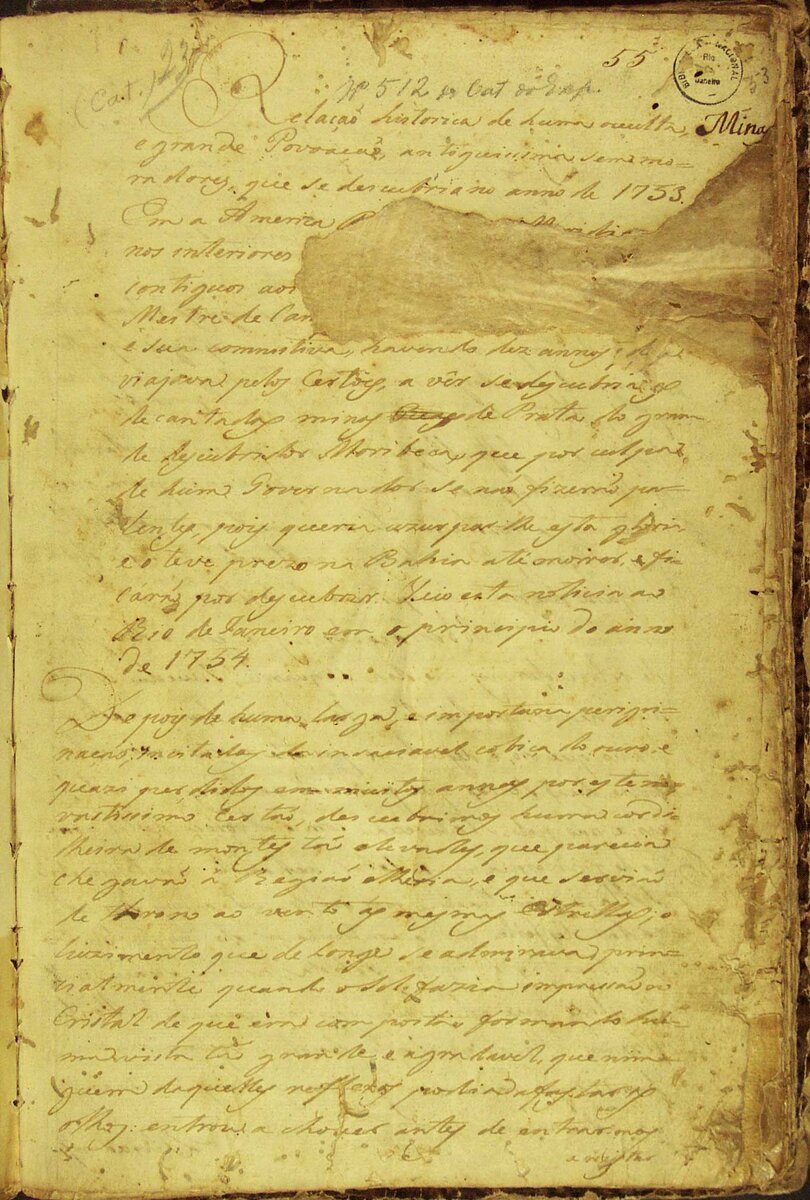 (Cat. 1232
55
BIBLIOTECA NACIONAL
Rio
Janeiro
53
Nº 512 do Cat. do Exp.
Minas
Relaçaõ historica de huma occulta,
e grande Povoaçaõ, antiquissima sem mo-
radores, que se descubriu no anno de 1753.
Em a America
nos interiores
contiguos aos
Mestre de Can
e sua commitiva, havendo dez annos, q̃
viajava pelos Certões, a vêr se descubria as
decantadas minas de Prata do gran-
de Descubridor Moribeca, que por culpa
de hum Governador se naõ fizeraõ pa-
tentes, pois queria uzurparlhe esta gloria
e o teve prezo na Bahia até morrer, e fi-
caraõ por descubrir. Veio esta noticia ao
Rio de Janeiro em o principio do anno
de 1754.
Depois de huma larga, e importuna perigri-
naçaõ, incitados da insaciavel cobiça do ouro, e
quazi perdidos em muitos annos por este
vastissimo Certaõ, descubrimos huma cordi-
lheira de montes taõ elevados, que parecia
chegavaõ á Regiaõ etheria, e que serviaõ
de throno ao vento, ás mesmas Estrellas; o
luzimento que de longe se admirava, prin-
cialmente quando o Sol fazia impressaõ ao
Cristal de que era composta, e formando hu-
ma vista taõ grande e agradavel, que nin-
guem daquelles reflexos podia afastar os
olhos: entrou a chover antes de entrarmos
a registar